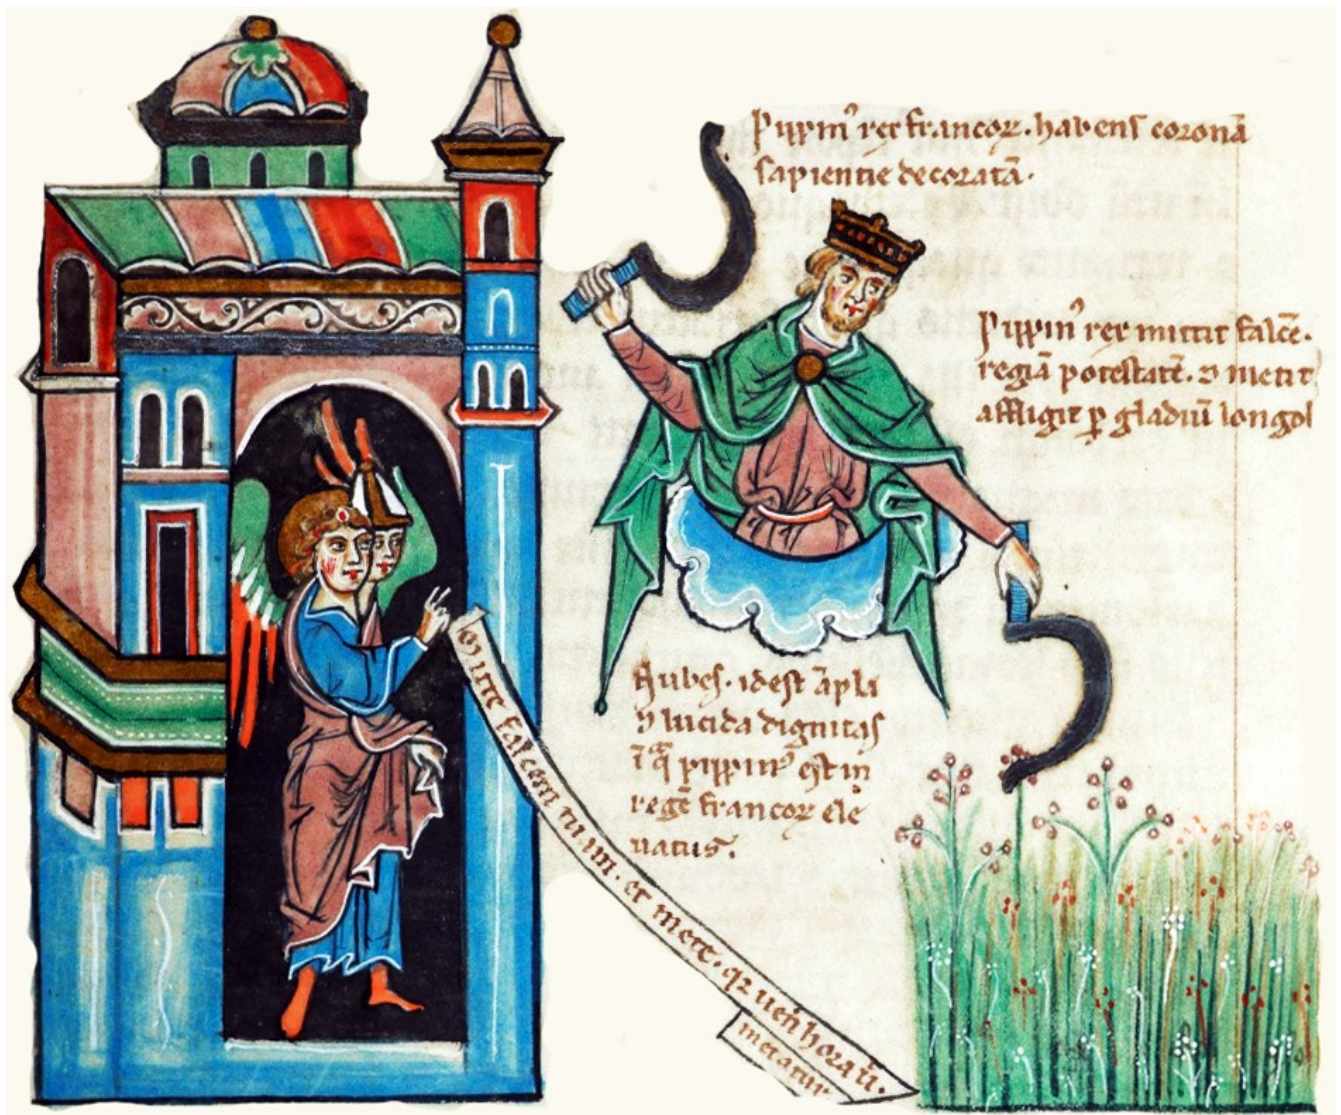 Pippin' rex francoꝝ. habens coronā
sapientie decoratā.
Pippin' rex mittit falcē.
regiā potestatē. ⁊ metit
affligit ꝑ gladiū longol
Nubes. id est āpla
⁊ lucida dignitas
ī qͣ pippin' est in
regē francoꝝ ele
uatus.
Mitte falcem tuam. et mete. qꝛ uen̄ hora ut̄.
metatur